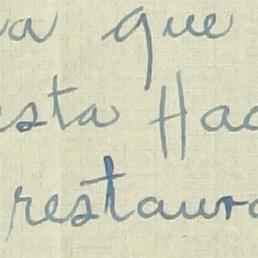 va que
esta Hac
restaura